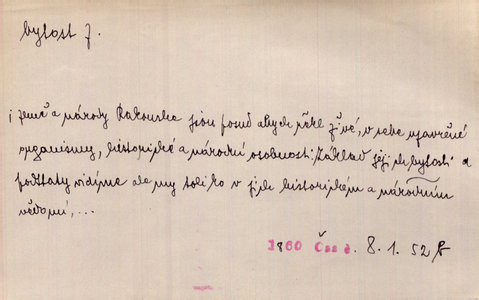 bytost f.
i země a národy Rakouska jsou posud abych řekl živé, v sebe uzavřené
organismy, historické a národní osobnosti: Základ jejich bytosti a
podstaty vidíme ale my toliko v jich historickém a národním
vědomí,...
1860 Čas 8. 1. 52